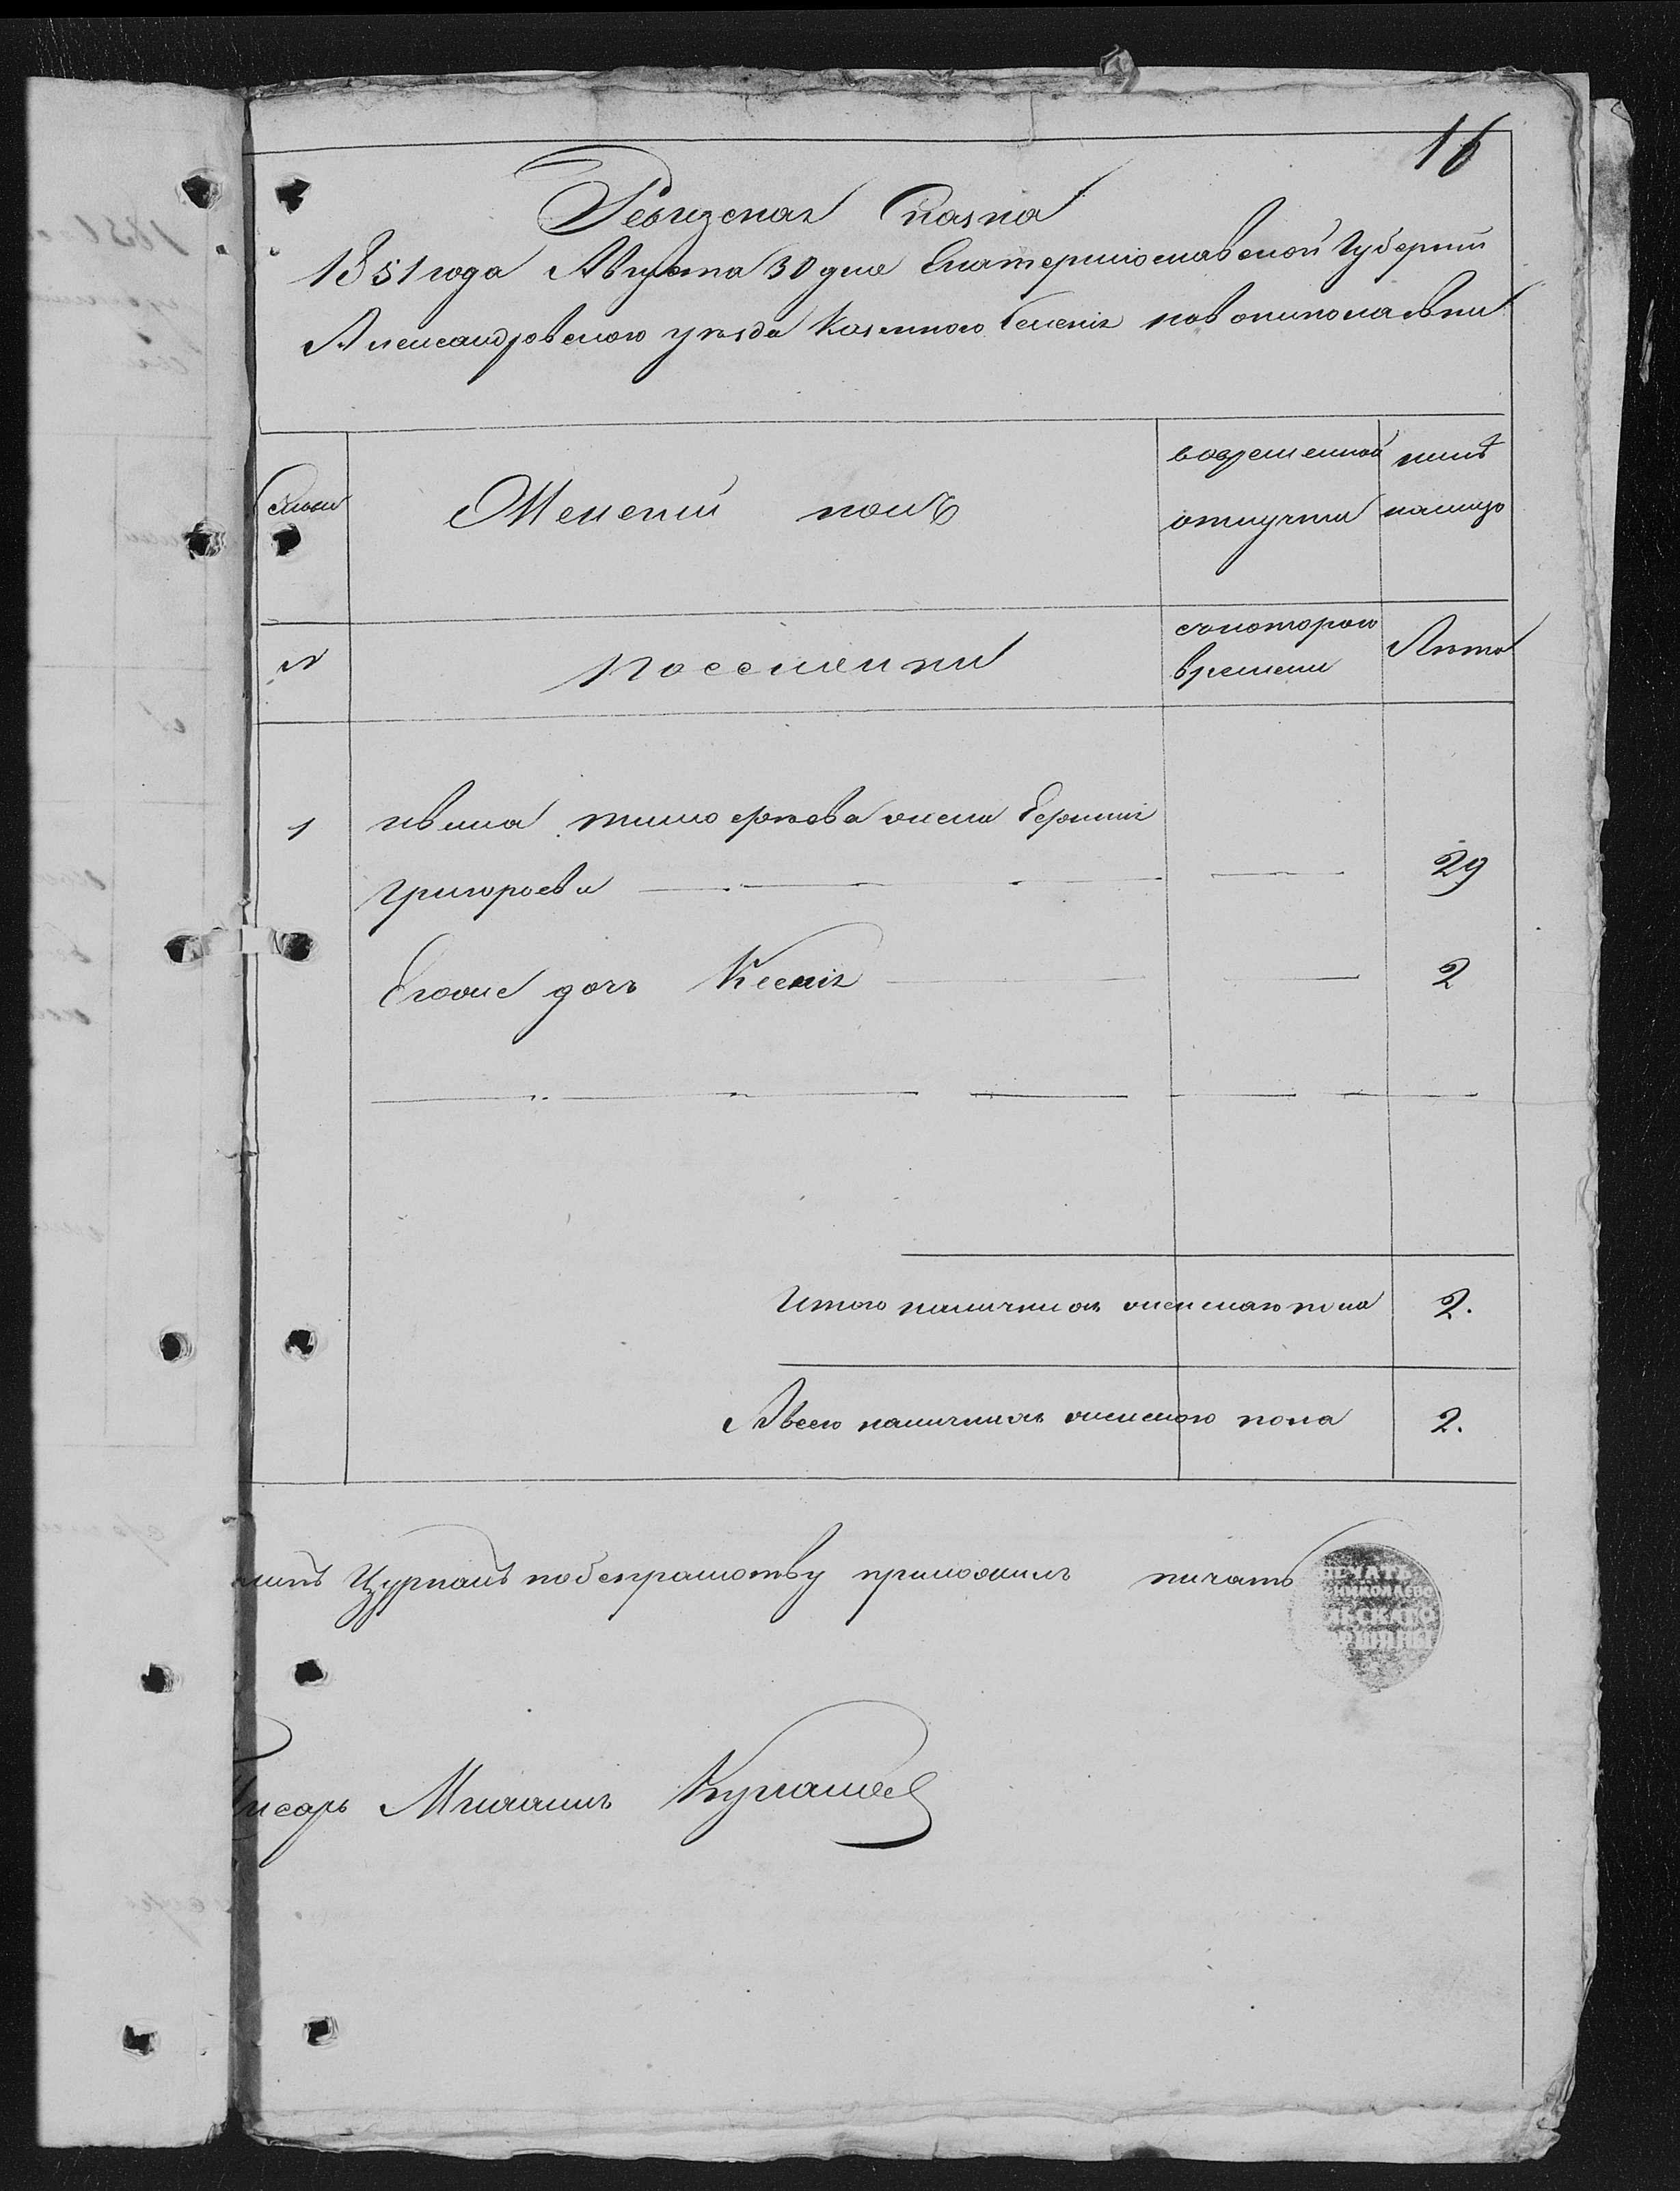 16
Ревизская Сказка
1851 года Августа 30 дня Екатеринославской Губернии
Александровского уезда Казенного Селения новониколаевки
Семьи
Женский полъ
вовременной отлучки
ныне налицо
№
поселенки
скоторого времени
Лета
1
ивана тимофеева жена Ефимия
Григорьева 29
Егоже дочъ Ксения 2
Итого наличнихъ женскаго пола 2.
Авсего наличнихъ женского пола 2.
Цурканъ побезграмотву приложилъ печать
ПЕЧАТЬ
НИКОЛАЕВС
ЛЬСКАГО
Писарь Михаилъ